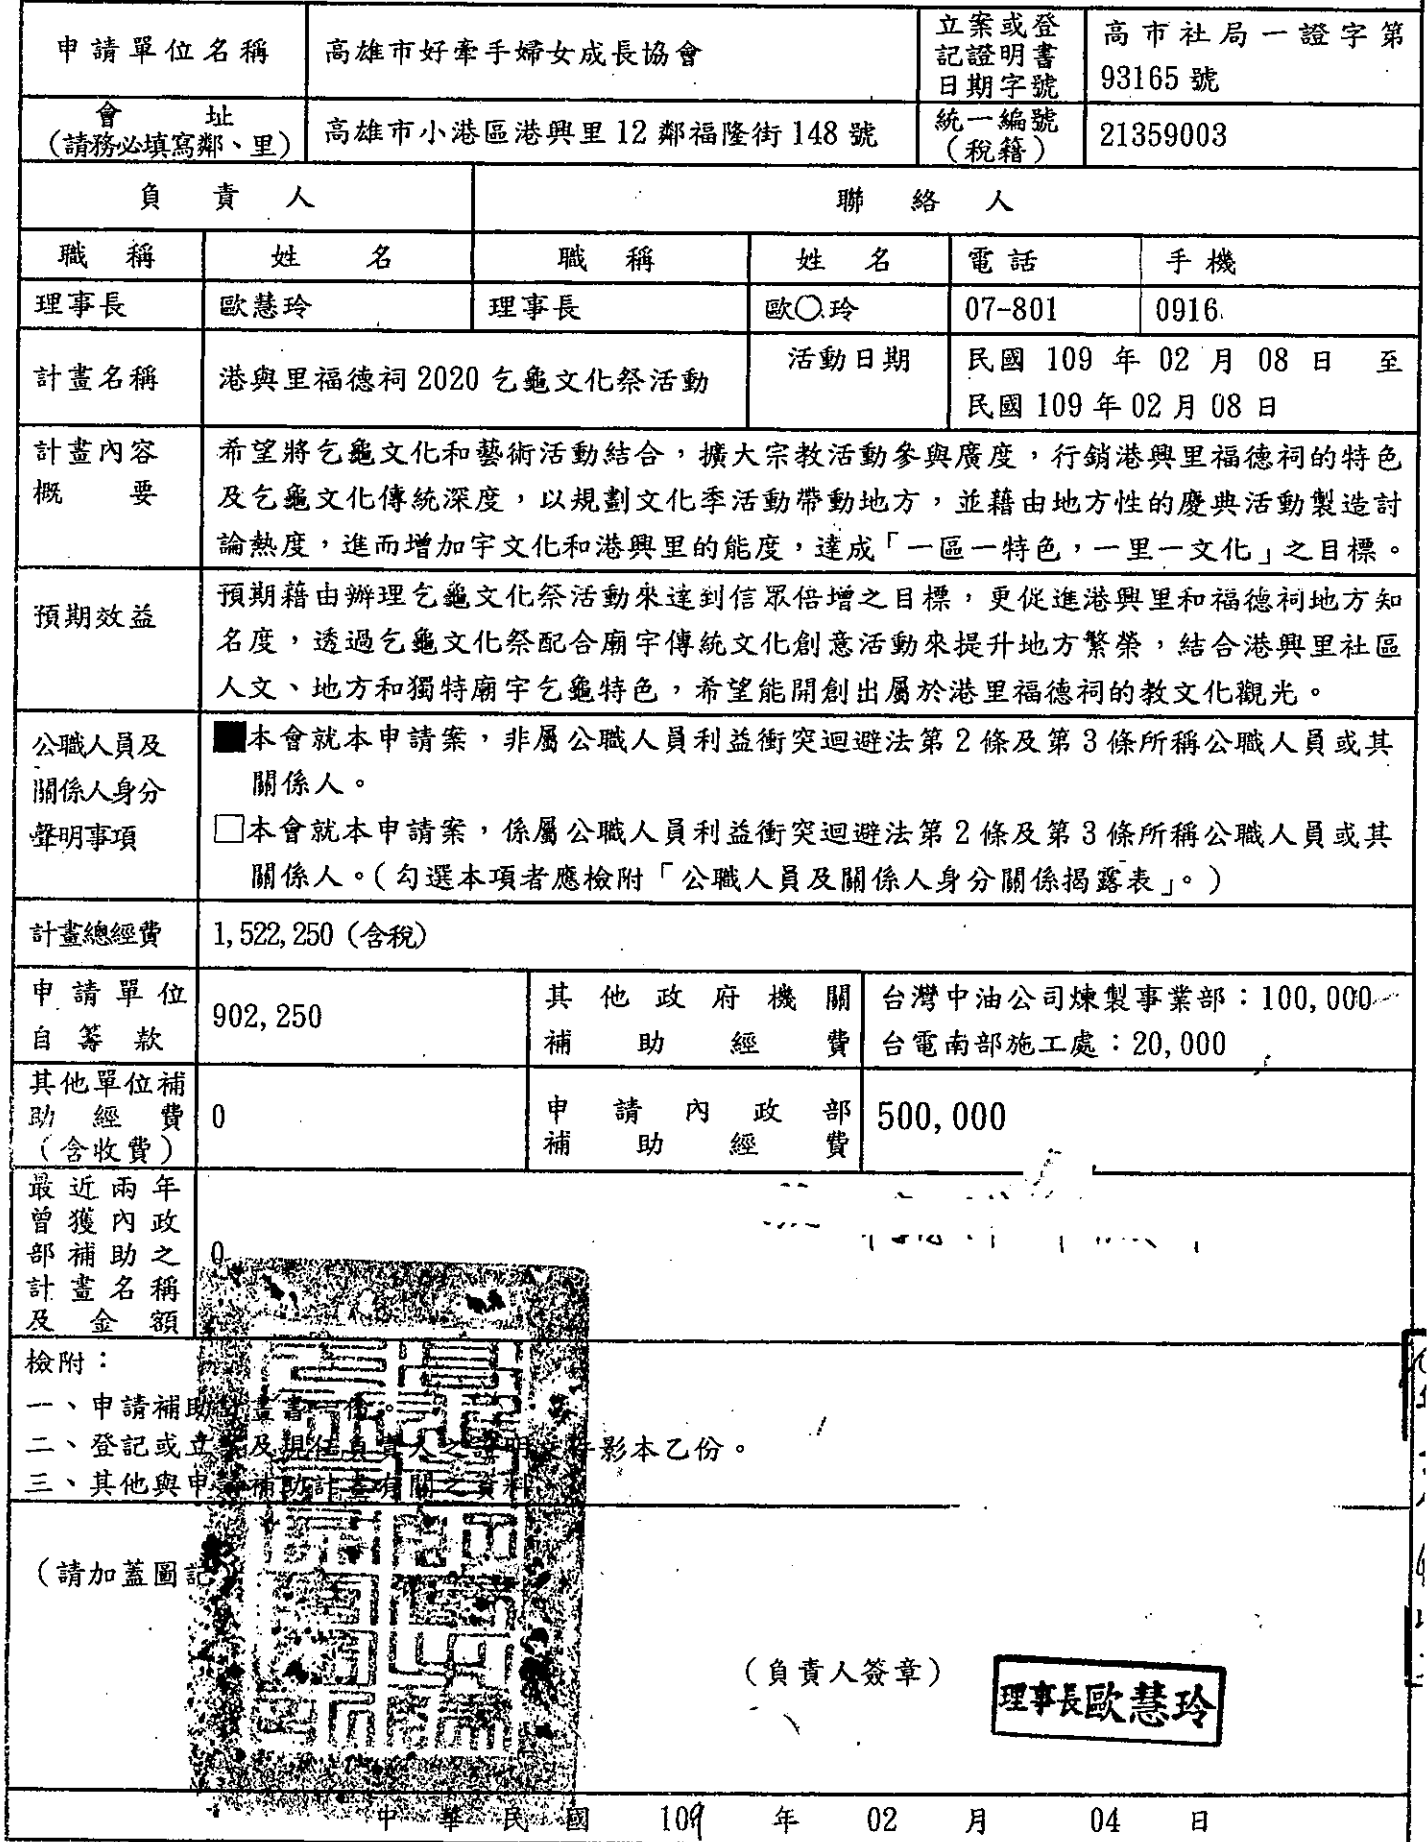 申請單位名稱 高雄市好牽手婦女成長協會 立案或登記證明書日期字號 高市社局一證字第
93165 號
會 址
(請務必填寫鄰、里) 高雄市小港區港興里 12 鄰福隆街 148 號 統一編號(稅籍) 21359003
負 責 人 聯 絡 人
職 稱 姓 名 職 稱 姓 名 電 話 手 機
理事長 歐慧玲 理事長 歐〇玲 07-801 0916
計畫名稱 港與里福德祠 2020 乞龜文化祭活動 活動日期 民國 109 年 02 月 08 日 至
民國 109 年 02 月 08 日
計畫內容 希望將乞龜文化和藝術活動結合，擴大宗教活動參與廣度，行銷港興里福德祠的特色
概 要 及乞龜文化傳統深度，以規劃文化季活動帶動地方，並藉由地方性的慶典活動製造討
論熱度，進而增加宇文化和港興里的能度，達成「一區一特色，一里一文化」之目標。
預期效益 預期藉由辦理乞龜文化祭活動來達到信眾倍增之目標，更促進港興里和福德祠地方知
名度，透過乞龜文化祭配合廟宇傳統文化創意活動來提升地方繁榮，結合港興里社區
人文、地方和獨特廟宇乞龜特色，希望能開創出屬於港里福德祠的教文化觀光。
公職人員及 ■本會就本申請案，非屬公職人員利益衝突迴避法第 2 條及第 3 條所稱公職人員或其
關係人身分 關係人。
聲明事項 □本會就本申請案，係屬公職人員利益衝突迴避法第 2 條及第 3 條所稱公職人員或其
關係人。(勾選本項者應檢附「公職人員及關係人身分關係揭露表」。)
計畫總經費 1,522,250 (含稅)
申請單位 902,250 其他政府機關 台灣中油公司煉製事業部：100,000
自 籌 款 補 助 經 費 台電南部施工處：20,000
其他單位補
助 經 費 0 申 請 內 政 部 500,000
(含收費) 補 助 經 費
最近兩年
曾獲內政
部補助之 0
計畫名稱
及 金 額
檢附：
一、申請補助計畫書一份。
二、登記或立案及現任負責人之證明文件影本乙份。
三、其他與申請補助計畫有關之資料
(請加蓋圖記)
(負責人簽章) 理事長歐慧玲
中 華 民 國 109 年 02 月 04 日